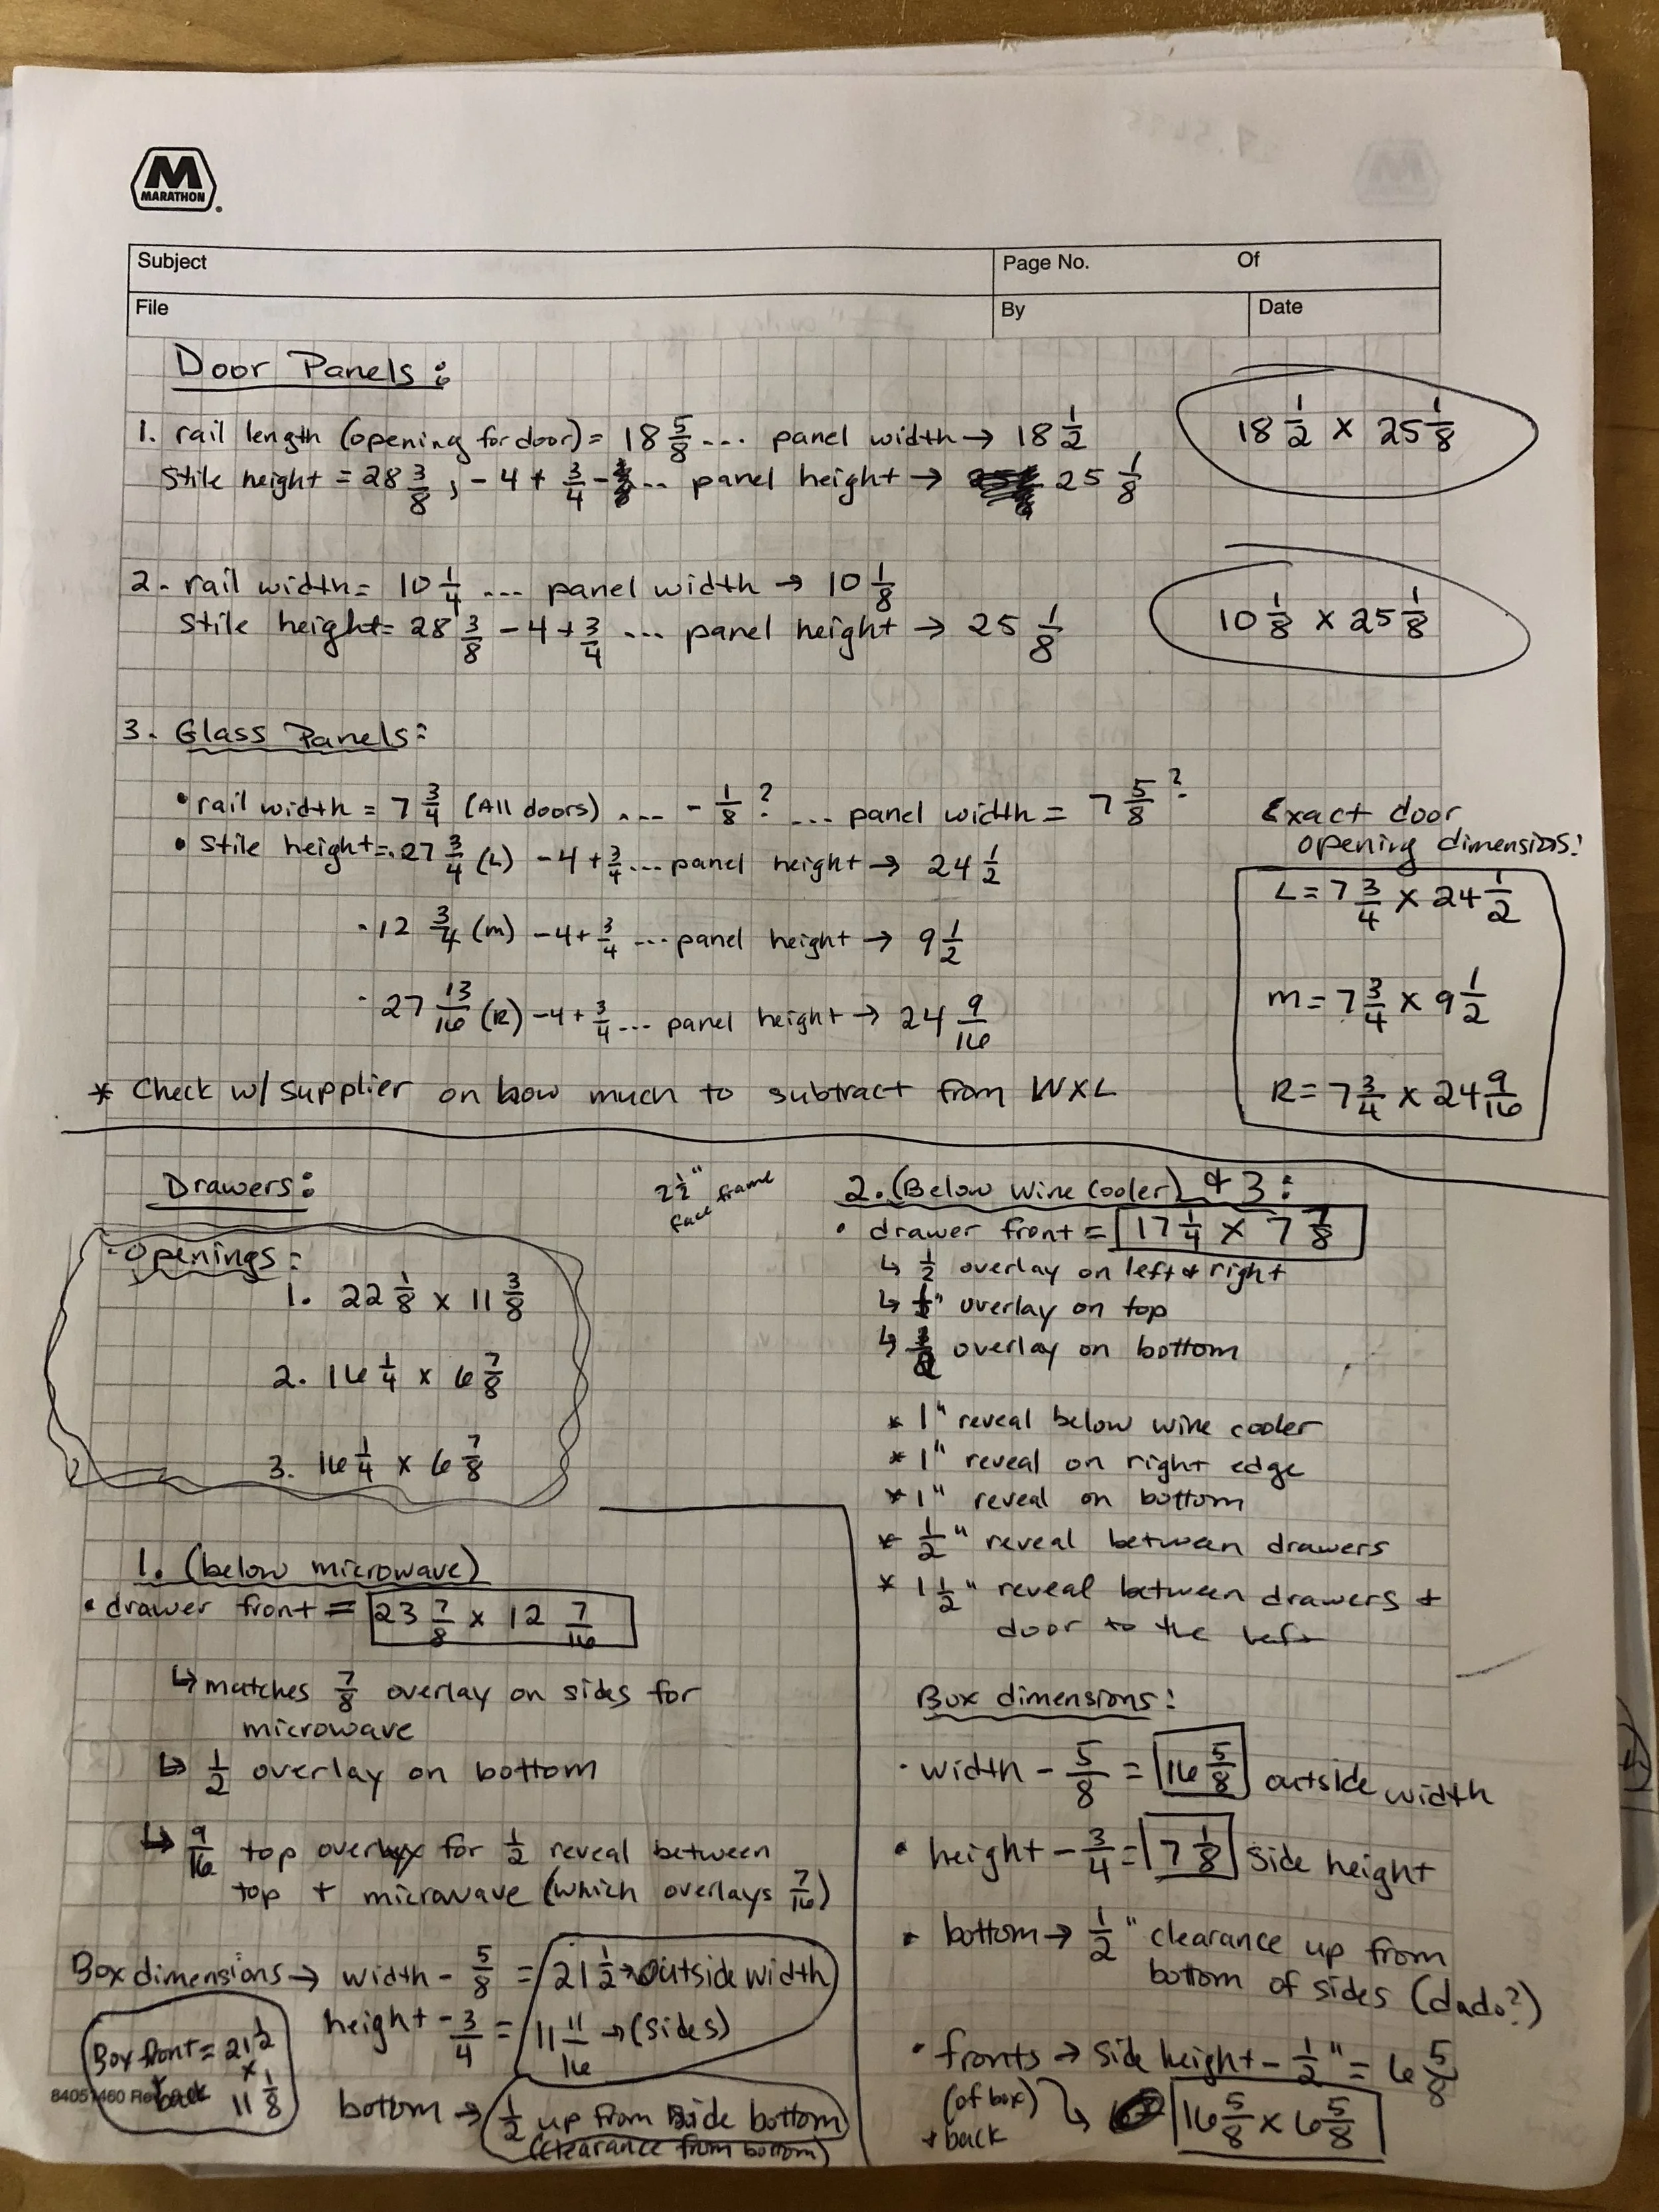 M
MARATHON
Subject
Page No. Of
File
By
Date
Door Panels:
1. rail length (opening for door) = 18 5/8 ... panel width → 18 1/2
18 1/2 x 25 1/8
Stile height = 28 3/8, - 4 + 3/4 - ... panel height → 25 1/8
2. rail width = 10 1/4 ... panel width → 10 1/8
Stile height = 28 3/8 - 4 + 3/4 ... panel height → 25 1/8
10 1/8 x 25 1/8
3. Glass Panels:
• rail width = 7 3/4 (All doors) ... - 1/8 ? ... panel width = 7 5/8 ?
• Stile height = 27 3/4 (L) - 4 + 3/4 ... panel height → 24 1/2
- 12 3/4 (m) - 4 + 3/4 ... panel height → 9 1/2
- 27 13/16 (R) - 4 + 3/4 ... panel height → 24 9/16
Exact door
opening dimensions:
L = 7 3/4 x 24 1/2
m = 7 3/4 x 9 1/2
R = 7 3/4 x 24 9/16
* Check w/ supplier on how much to subtract from WXL
Drawers:
2 1/2" face frame
- Openings:
1. 22 1/8 x 11 3/8
2. 16 1/4 x 6 7/8
3. 16 1/4 x 6 7/8
1. (below microwave)
• drawer front = 23 7/8 x 12 7/16
↳ matches 7/8 overlay on sides for
microwave
↳ 1/2 overlay on bottom
↳ 9/16 top overlay for 1/2 reveal between
top + microwave (which overlays 7/16)
Box dimensions → width - 5/8 = 21 1/2 → outside width
height - 3/4 = 11 11/16 → (sides)
Box front = 21 1/2
+ back x 11 1/8
bottom → 1/2 up from side bottom
(clearance from bottom)
84051460 Re
2. (Below wine cooler) & 3:
• drawer front = 17 1/4 x 7 7/8
↳ 1/2 overlay on left & right
↳ " overlay on top
↳ overlay on bottom
* 1" reveal below wine cooler
* 1" reveal on right edge
* 1" reveal on bottom
* 1/2" reveal between drawers
* 1 1/2" reveal between drawers +
door to the left
Box dimensions:
· width - 5/8 = 16 5/8 outside width
• height - 3/4 = 7 1/8 side height
• bottom → 1/2" clearance up from
bottom of sides (dado?)
• fronts → side height - 1/2" = 6 5/8
(of box) ↳ 16 5/8 x 6 5/8
+ back